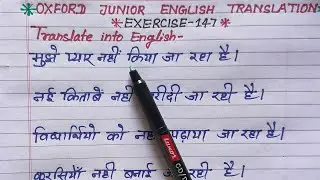 *OXFORD JUNIOR ENGLISH TRANSLATION*
*EXERCISE-147
Translate into English-
मुझे प्यार नहीं किया जा रहा है।
नई किताबें नहीं खरीदी जा रही है।
विद्यार्थियो को पढ़ाया जा रहा है।
कुरसियाँ नहीं बनाई जा रही है।